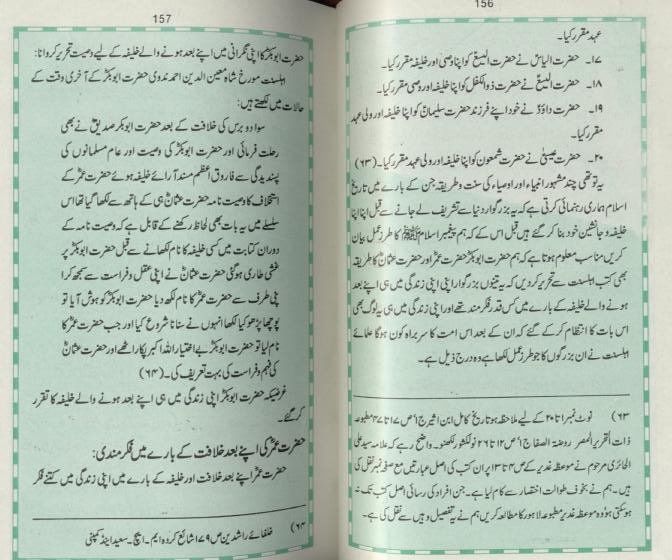 156
عہد مقرر کیا۔
۱۷۔ حضرت الیاسؑ نے حضرت الیسعؑ کو اپنا وصی اور خلیفہ مقرر کیا۔
۱۸۔ حضرت الیسعؑ نے حضرت ذوالکفل کو اپنا خلیفہ اور وصی مقرر کیا۔
۱۹۔ حضرت داؤدؑ نے خود اپنے فرزند حضرت سلیمانؑ کو اپنا خلیفہ اور ولی عہد
مقرر کیا۔
۲۰۔ حضرت عیسیٰؑ نے حضرت شمعون کو اپنا خلیفہ اور ولی عہد مقرر کیا۔ (۶۳)
یہ تو تھی چند مشہور انبیاء اور اوصیاء کی سنت و طریقہ جن کے بارے میں تاریخ
اسلام ہماری رہنمائی کرتی ہے کہ یہ بزرگوار دنیا سے تشریف لے جانے سے قبل اپنا اپنا
خلیفہ و جانشین خود بنا کر گئے ہیں قبل اس کے کہ ہم پیغمبر اسلام ﷺ کا طرز عمل بیان
کریں مناسب معلوم ہوتا ہے کہ ہم حضرت ابوبکرؓ حضرت عمرؓ اور حضرت عثمانؓ کا طریقہ
بھی کتب اہلسنت سے تحریر کردیں کہ یہ تینوں بزرگوار اپنی اپنی زندگی میں ہی اپنے بعد
ہونے والے خلیفہ کے بارے میں کس قدر فکر مند تھے اور اپنی زندگی میں ہی یہ لوگ بھی
اس بات کا انتظام کر کے گئے کہ ان کے بعد اس امت کا سربراہ کون ہوگا علمائے
اہلسنت نے ان بزرگوں کا جو طرز عمل لکھا ہے وہ درج ذیل ہے۔
۶۳) نوٹ نمبر ۱ تا ۲۰ کے لیے ملاحظہ ہو تاریخ کامل ابن اثیر ج ۱ ص ۱۷ تا ۴۷ مطبوعہ
ذات التحریر المصر روضۃ الصفا ج ۱ ص ۱۲ تا ۲۶ نولکشور لکھنو۔ واضح رہے کہ علامہ سید علی
الحائری مرحوم نے موعظہ غدیر کے ص ۴ تا ۱۳ پر ان کتب کی اصل عبارتیں مع صفحہ نمبر نقل کی
ہیں۔ ہم نے بخوف طوالت اختصار سے کام لیا ہے۔ جن افراد کی رسائی اصل کتب تک نہ
ہوسکتی ہو وہ موعظہ غدیر مطبوعہ لاہور کا مطالعہ کریں ہم نے یہ تفصیل وہیں سے نقل کی ہے۔
157
حضرت ابوبکرؓ کا اپنی نگرانی میں اپنے بعد ہونے والے خلیفہ کے لیے وصیت تحریر کروانا:
اہلسنت مورخ شاہ معین الدین احمد ندوی حضرت ابوبکرؓ کے آخری وقت کے
حالات میں لکھتے ہیں:
سوا دو برس کی خلافت کے بعد حضرت ابوبکر صدیقؓ نے بھی
رحلت فرمائی اور حضرت ابوبکرؓ کی وصیت اور عام مسلمانوں کی
پسندیدگی سے فاروق اعظم مسند آرائے خلیفہ ہوئے حضرت عمرؓ کے
استخلاف کا وصیت نامہ حضرت عثمانؓ ہی کے ہاتھ سے لکھا گیا تھا اس
سلسلے میں یہ بات بھی لحاظ رکھنے کے قابل ہے کہ وصیت نامہ کے
دوران کتابت میں کسی خلیفہ کا نام لکھانے سے قبل حضرت ابوبکرؓ پر
غشی طاری ہوگئی حضرت عثمانؓ نے اپنی عقل و فراست سے سمجھ کر ا
پنی طرف سے حضرت عمرؓ کا نام لکھ دیا حضرت ابوبکرؓ کو ہوش آیا تو
پوچھا پڑھو کیا لکھا انہوں نے سنانا شروع کیا اور جب حضرت عمرؓ کا
نام لیا تو حضرت ابوبکرؓ بے اختیار اللہ اکبر پکار اٹھے اور حضرت عثمانؓ
کی فہم و فراست کی بہت تعریف کی۔ (۶۴)
غرضیکہ حضرت ابوبکرؓ اپنی زندگی میں ہی اپنے بعد ہونے والے خلیفہ کا تقرر
کر گئے۔
حضرت عمرؓ کی اپنے بعد خلافت کے بارے میں فکرمندی:
حضرت عمرؓ اپنے بعد خلافت اور خلیفہ کے بارے میں اپنی زندگی میں کتنے فکر
۶۴) خلفائے راشدین ص ۱۷۹ شائع کردہ ایم۔ ایچ۔ سعید اینڈ کمپنی